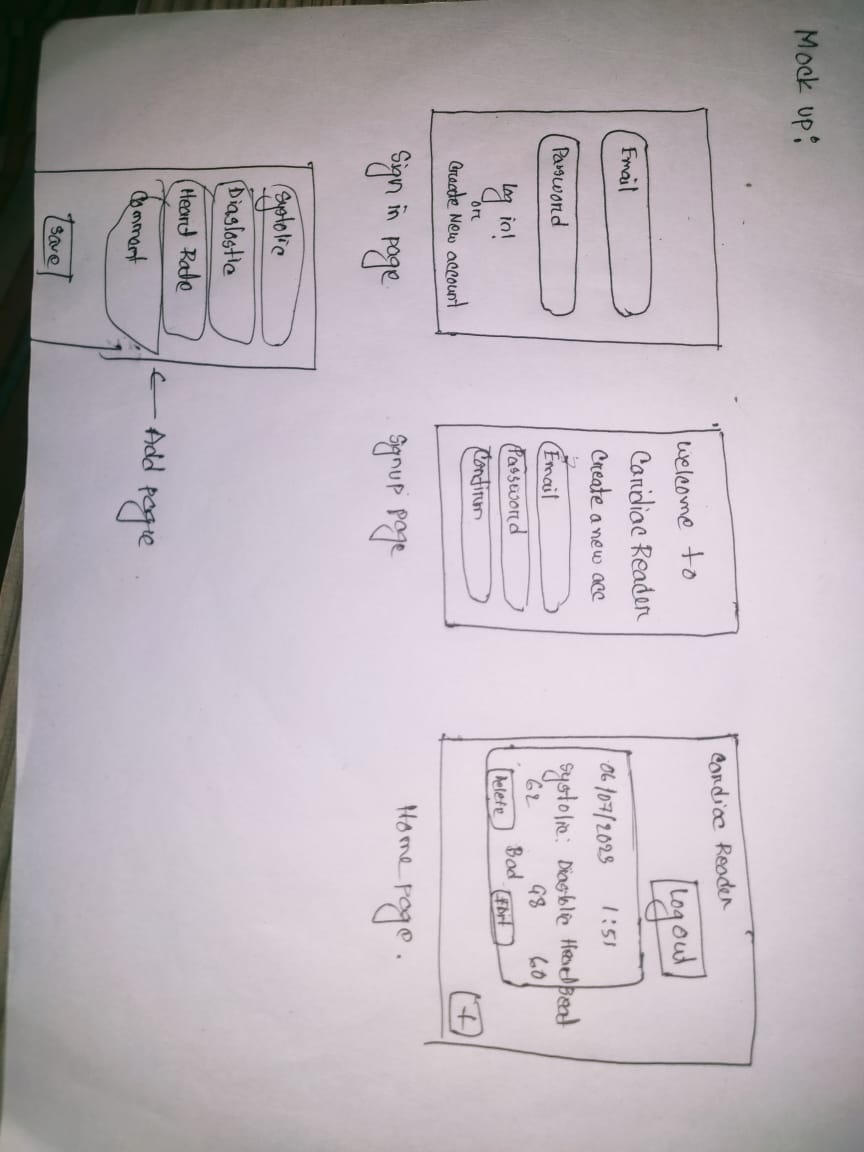 Mock up:
Email
Password
Log in!
or
Create New account
Sign in page
Welcome to
Cardiac Reader
Create a new acc
Email
Password
Confirm
Signup page
Cardiac Reader
Log out
06/07/2023 1:51
Systolic: Diastolic HeartBeat
62 98 60
Delete Bad Edit
+
Home page.
Systolic
Diaglostic
Heart Rate
Comment
Save
Add page